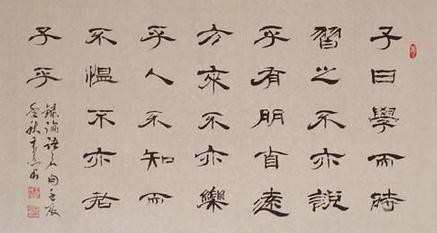 子曰學而時
習之不亦說
乎有朋自遠
方來不亦樂
乎人不知而
不慍不亦君
子乎
錄論語名句
金秋